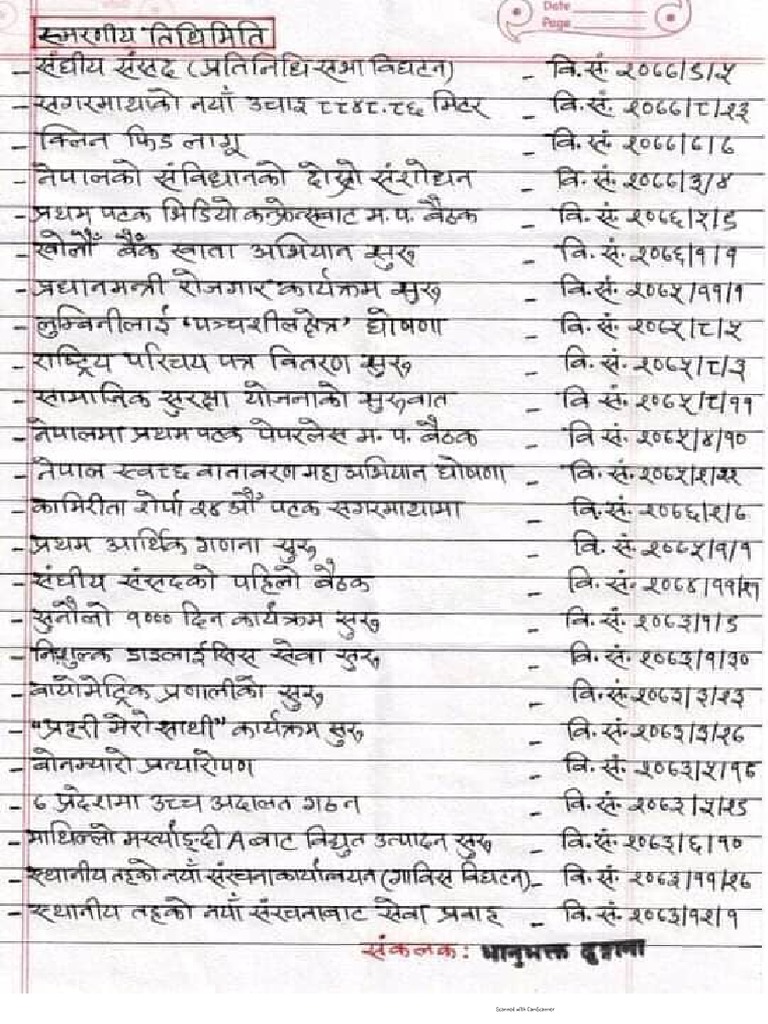 Date
Page
स्मरणीय तिथिमिति
- संघीय संसद (प्रतिनिधि सभा विघटन) - वि.सं. २०७७/९/५
- सगरमाथाको नयाँ उचाइ ८८४८.८६ मिटर - वि.सं. २०७७/८/२३
- क्लिन फिड लागू - वि.सं. २०७७/७/७
- नेपालको संविधानको दोस्रो संशोधन - वि.सं. २०७७/३/४
- प्रथम पटक भिडियो कन्फ्रेन्सबाट म.प. बैठक - वि.सं. २०७६/२/९
- खोलौँ बैंक खाता अभियान सुरु - वि.सं. २०७६/१/१
- प्रधानमन्त्री रोजगार कार्यक्रम सुरु - वि.सं. २०७५/११/१
- लुम्बिनीलाई 'पञ्चशील क्षेत्र' घोषणा - वि.सं. २०७५/८/५
- राष्ट्रिय परिचय पत्र वितरण सुरु - वि.सं. २०७५/८/३
- सामाजिक सुरक्षा योजनाको सुरुवात - वि.सं. २०७५/८/११
- नेपालमा प्रथम पटक पेपरलेस म.प. बैठक - वि.सं. २०७५/४/१०
- नेपाल स्वच्छ वातावरण महा अभियान घोषणा - वि.सं. २०७५/२/२२
- कामिरीता शेर्पा २४ औँ पटक सगरमाथामा - वि.सं. २०७६/२/७
- प्रथम आर्थिक गणना सुरु - वि.सं. २०७५/१/१
- संघीय संसदको पहिलो बैठक - वि.सं. २०७४/११/२१
- सुनौलो १००० दिन कार्यक्रम सुरु - वि.सं. २०७३/१/९
- निशुल्क डाइलाईसिस सेवा सुरु - वि.सं. २०७३/१/३०
- बायोमेट्रिक प्रणालीको सुरु - वि.सं. २०७३/३/२३
- "प्रहरी मेरो साथी" कार्यक्रम सुरु - वि.सं. २०७३/३/२७
- बोनम्यारो प्रत्यारोपण - वि.सं.
- ७ प्रदेशमा उच्च अदालत गठन - वि.सं. २०७३/५/२९
- माथिल्लो मर्स्याङ्दी A बाट विद्युत उत्पादन सुरु - वि.सं. २०७३/६/१०
- स्थानीय तहको नयाँ संरचना कार्यान्वयन (गाविस विघटन) - वि.सं. २०७३/११/२७
- स्थानीय तहको नयाँ संरचनाबाट सेवा प्रवाह - वि.सं. २०७३/१२/१
संकलक: भानुभक्त ढुङ्गाना
Scanned with CamScanner